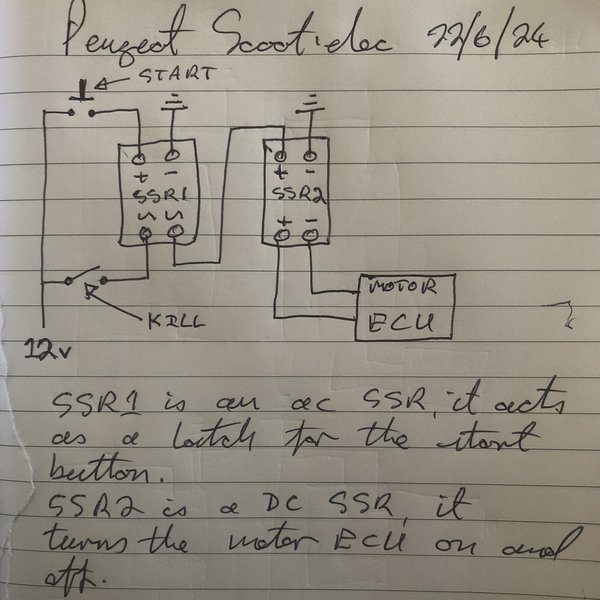 Peugeot Scoot'elec 22/6/24
START
+ - + -
SSR1 SSR2
~ ~ + -
MOTOR
ECU
KILL
12v
SSR1 is an ac SSR, it acts
as a latch for the start
button.
SSR2 is a DC SSR, it
turns the motor ECU on and
off.